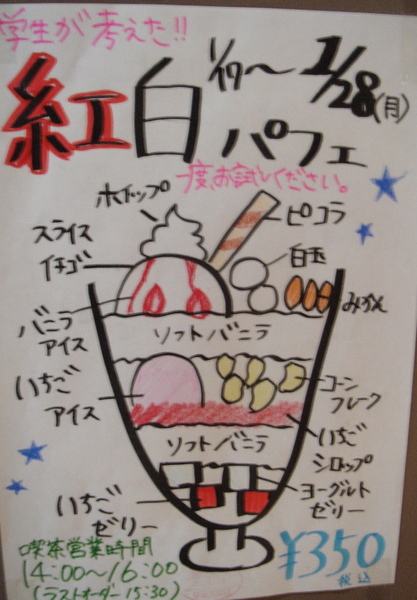 学生が考えた!!
紅白パフェ
1/17〜1/28(月)
一度、お試しください。
ホイップ
ピコラ
スライス
イチゴ
白玉
みかん
バニラ
アイス
ソフトバニラ
いちご
アイス
コーン
フレーク
いちご
シロップ
ソフトバニラ
ヨーグルト
ゼリー
いちご
ゼリー
喫茶営業時間
14:00〜16:00
(ラストオーダー15:30)
¥350
税込